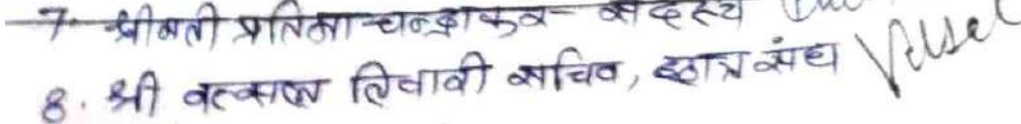 7. श्रीमती प्रतिमा चन्द्राकर - सदस्य
8. श्री वत्सल तिवारी सचिव, छात्र संघ